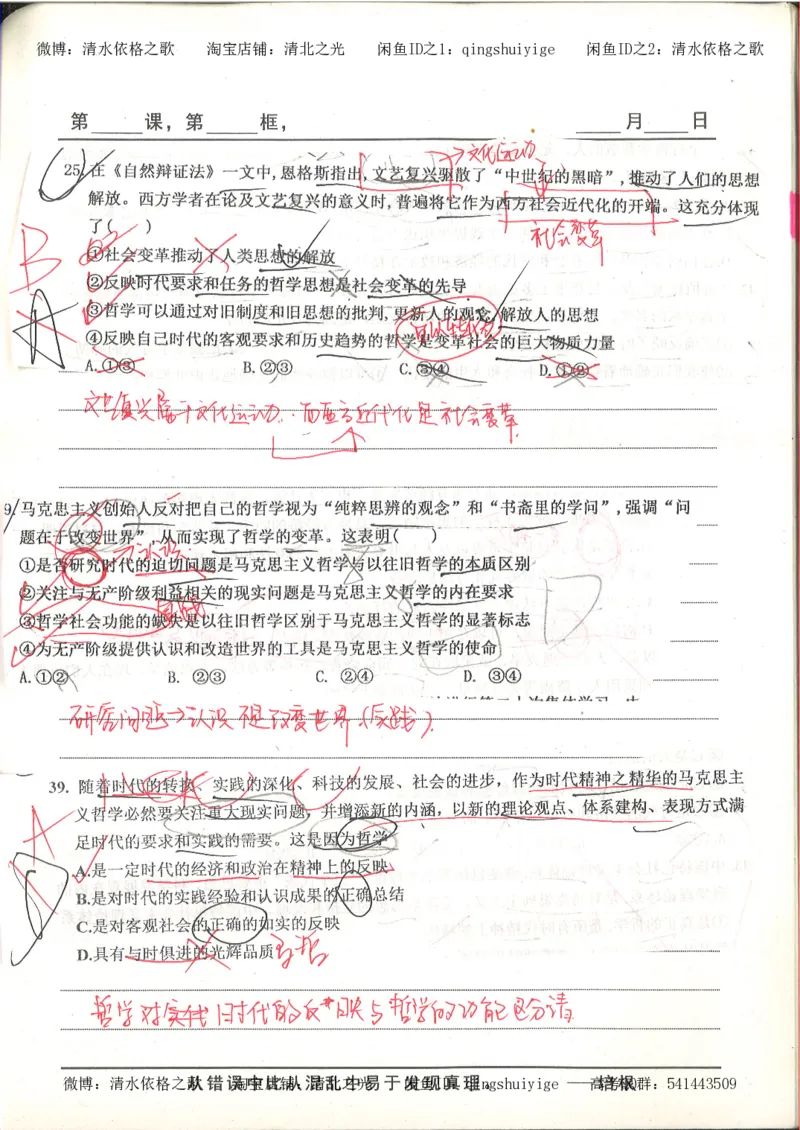 微博：清水依格之歌 淘宝店铺：清北之光 闲鱼ID之1：qingshuiyige 闲鱼ID之2：清水依格之歌
第 课，第 框， 月 日
文化运动
25.在《自然辩证法》一文中,恩格斯指出,文艺复兴驱散了“中世纪的黑暗”,推动了人们的思想
解放。西方学者在论及文艺复兴的意义时,普遍将它作为西方社会近代化的开端。这充分体现
了( )
社会变革
B
①社会变革推动了人类思想的解放
②反映时代要求和任务的哲学思想是社会变革的先导
③哲学可以通过对旧制度和旧思想的批判,更新人的观念,解放人的思想
A
④反映自己时代的客观要求和历史趋势的哲学是变革社会的巨大物质力量
A.①③ B.②③ C.③④ D.①②
文艺复兴属于文化运动. 而西方近代化是社会变革
9 马克思主义创始人反对把自己的哲学视为“纯粹思辨的观念”和“书斋里的学问”,强调“问
题在于改变世界”,从而实现了哲学的变革。这表明( )
①是否研究时代的迫切问题是马克思主义哲学与以往旧哲学的本质区别
②关注与无产阶级利益相关的现实问题是马克思主义哲学的内在要求
③哲学社会功能的缺失是以往旧哲学区别于马克思主义哲学的显著标志
④为无产阶级提供认识和改造世界的工具是马克思主义哲学的使命
A.①② B. ②③ C. ②④ D. ③④
研究问题→认识 不是改变世界(实践).
39. 随着时代的转换、实践的深化、科技的发展、社会的进步，作为时代精神之精华的马克思主
义哲学必然要关注重大现实问题，并增添新的内涵，以新的理论观点、体系建构、表现方式满
足时代的要求和实践的需要。这是因为哲学
A
A.是一定时代的经济和政治在精神上的反映
B.是对时代的实践经验和认识成果的正确总结
C.是对客观社会的正确的如实的反映
D.具有与时俱进的光辉品质 马哲
哲学对 时代的反映与哲学的功能区分清
微博：清水依格之歌 淘宝店铺：清北之光 闲鱼ID：qingshuiyige 高考QQ群：541443509
从错误中比从混乱中易于发现真理。 ——培根